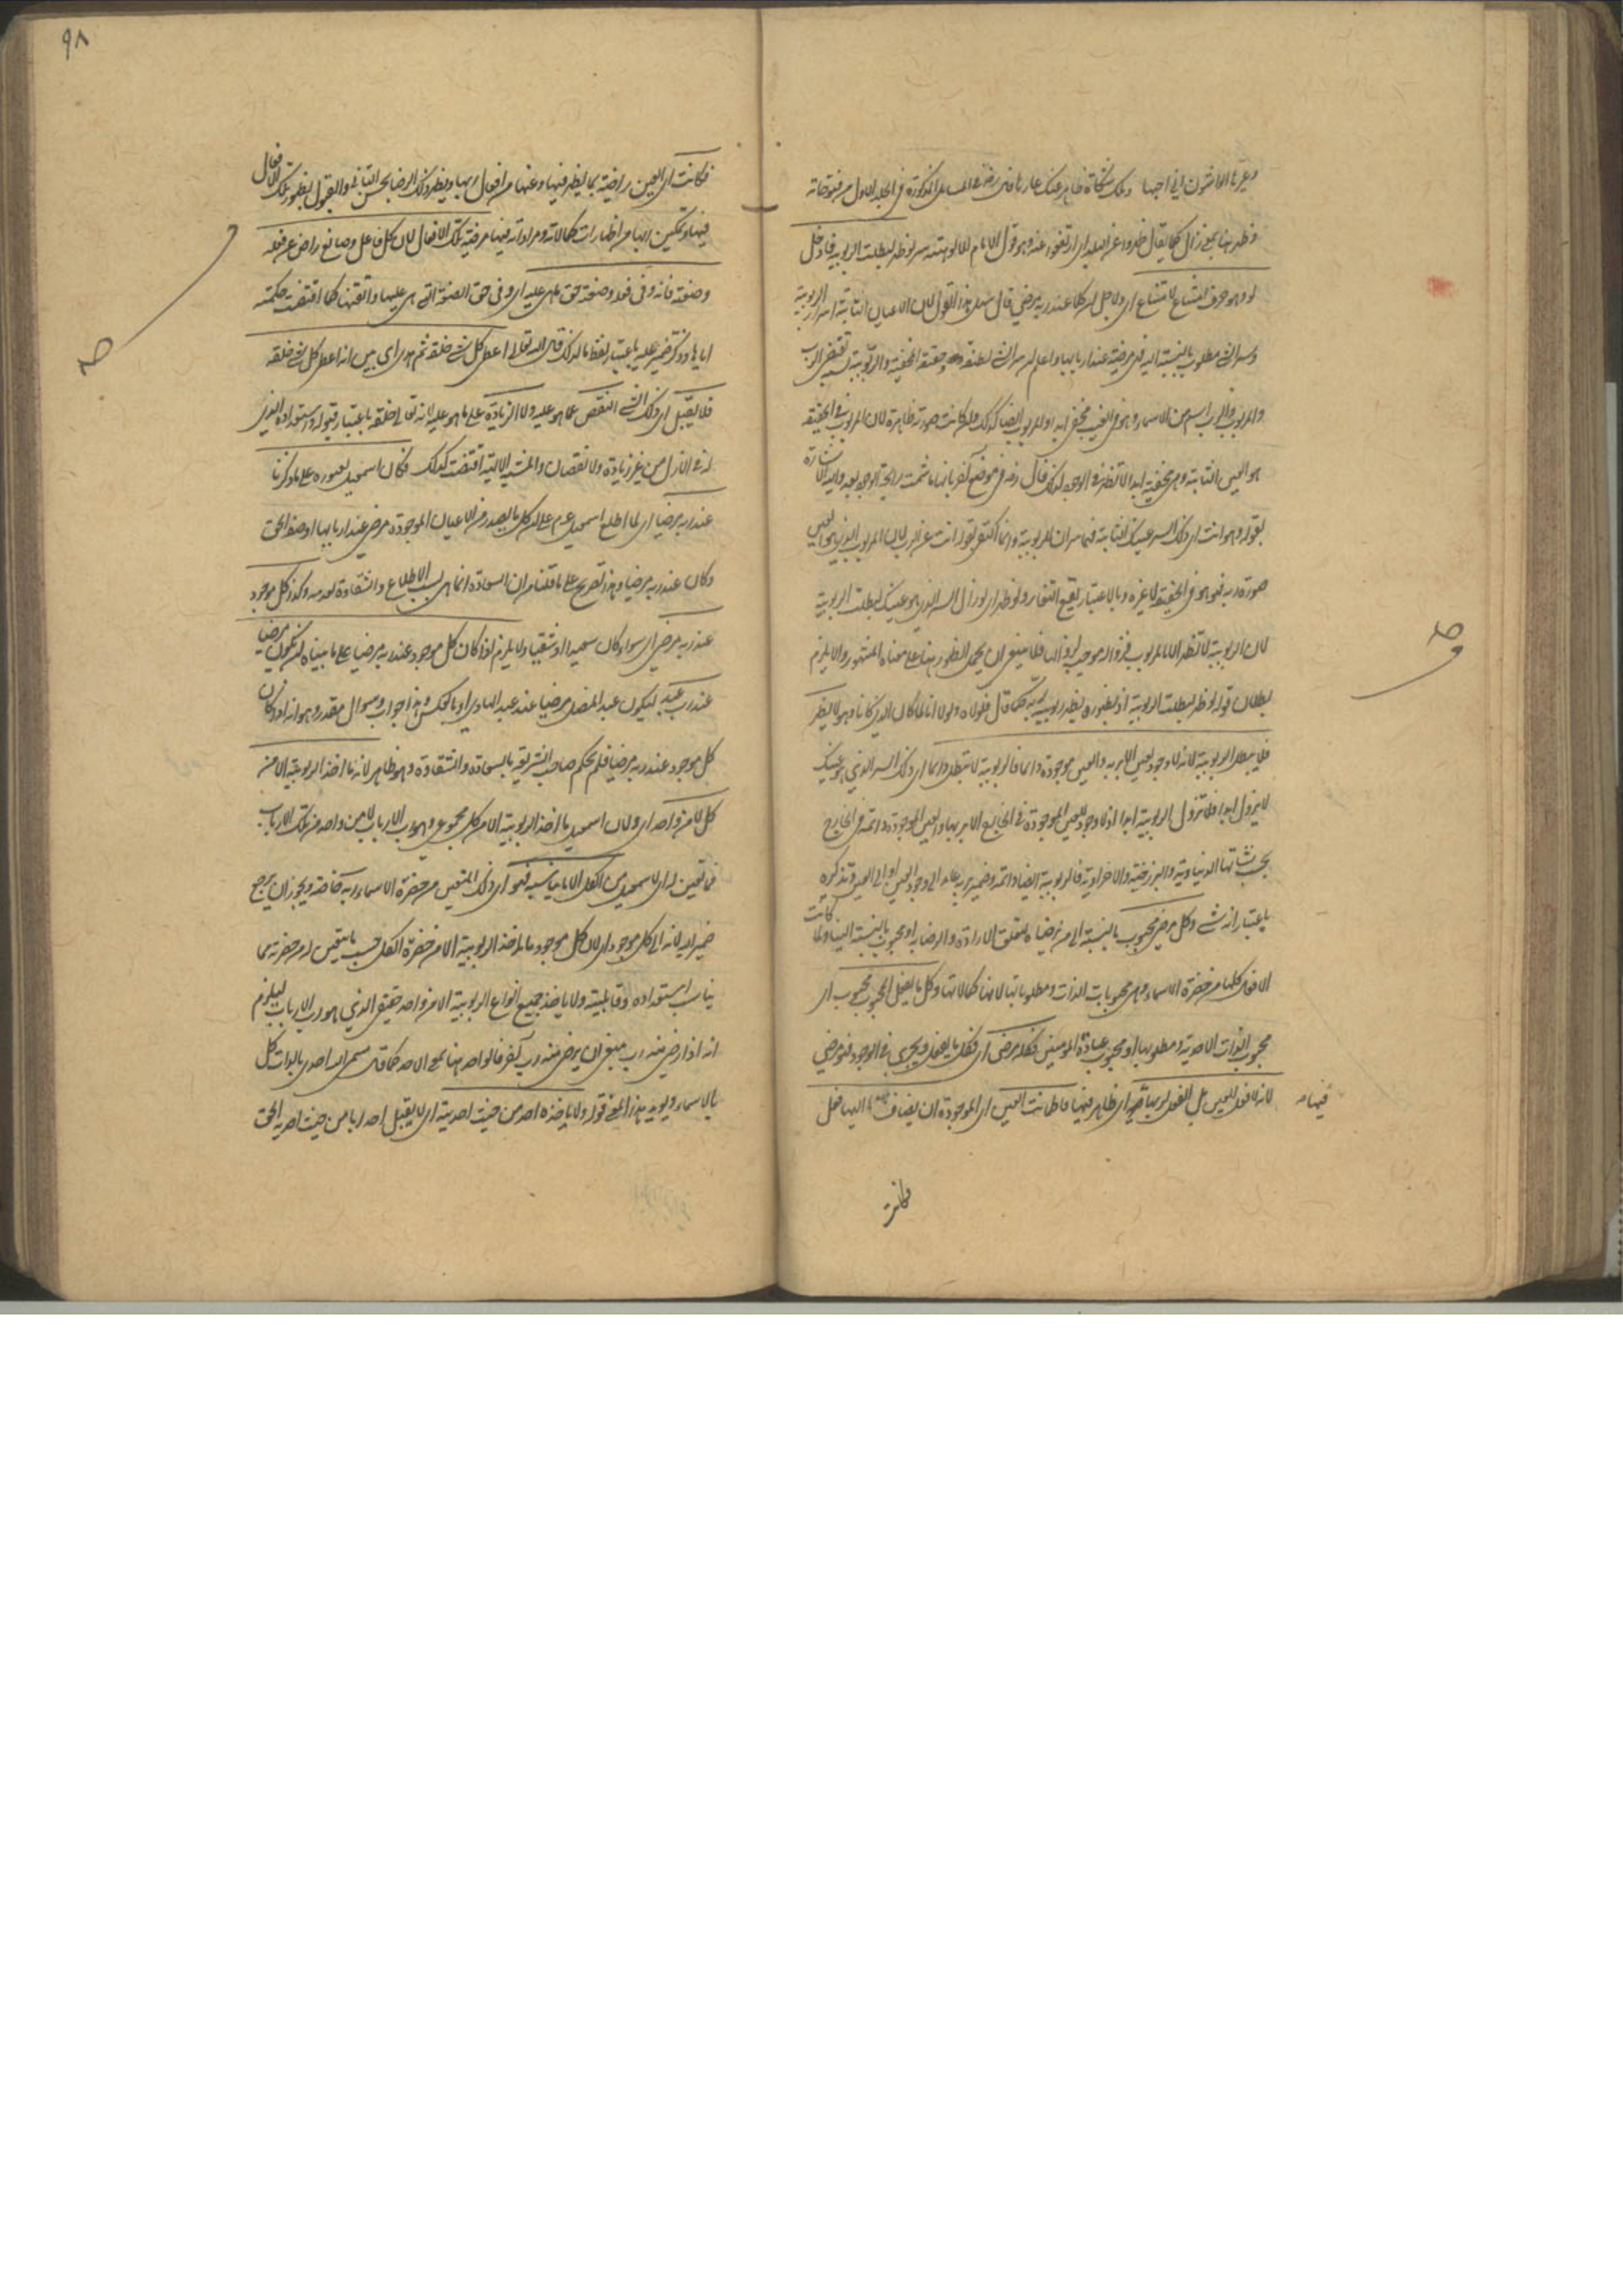 وظهر هنا بمعنى زال كما يقال ظهروا عن البلد اى ارتفعوا عنه وهو قول الامام ان للالوهية سر لو ظهر لبطلت الربوبية فادخل
لو وهو حرف امتناع لامتناع اى ولاجل ان كلا عند ربه مرضى قال سهل هذا القول لان الاعيان الثابتة اسرار الربوبية
وسر الشى مطلوب بالنسبة اليه مرضية عند اربابها واعلم ان سر الشى لطيفته وحقيقته المخفية والربوبية نسبة تقتضى الرب
والمربوب والرب اسم من الاسماء وهو فى الغيب مخفى ابدا والمربوب ايضا كذلك وان كانت صورته ظاهرة لان المربوب فى الحقيقة
هو العين الثابتة وهى مخفية ابدا لا تظهر فى الوجود لذلك قال رضه فى موضع آخر بانها ما شمت رائحة الوجود بعد واليه الاشارة
بقوله وهو انت اى ذلك السر عينك الثابتة فهما سران للربوبية وانما اكتفى بقوله انت عن الرب لان المربوب الذى هو العين
صورة ربه فهو هو فى الحقيقة لا غيره وبالاعتبار يقع التغاير ولو ظهر اى لو زال السر الذى هو عينك لبطلت الربوبية
لان الربوبية لا تظهر الا بالمربوب فزواله موجب لزوالها فلا ينبغى ان يحمل الظهور هنا على معناه المشهور والا يلزم
بطلان قوله لو ظهر لبطلت الربوبية اذ بظهوره يظهر ربوبية ربه كما قال فلولاه ولولانا لما كان الذى كانا وهو لا يظهر
فلا يبطل الربوبية لانه لا وجود لعين الا بربه والعين موجودة دائما فالربوبية لا تبطل دائما اى ذلك السر الذى هو عينك
لا يزول ابدا فلا تزول الربوبية ابدا اذ لا وجود للعين الموجودة فى الخارج الا بربها والعين الموجودة دائمة فى الخارج
بحسب نشآتها الدنياوية والبرزخية والاخراوية فالربوبية ايضا دائمة وضمير بربه عائد الى وجود العين او الى العين وتذكيره
باعتبار انه شئ وكل مرضى محبوب بالنسبة الى من يرضاه لتعلق الارادة والرضا به او محبوب بالنسبة الينا ولما كانت
الافعال كلها من حضرة الاسماء وهى محبوبات الذات ومطلوباتها لانها كمالاتها وكل ما يفعل المحبوب محبوب اى
محبوب الذات الاحدية ومطلوبها او محبوب عباده المؤمنين فكله مرضى اى فكل ما يفعل ويجرى فى الوجود فهو مرضى
لانه لا فعل للعين بل الفعل لربها فيها اى ظاهر فيها فاطمانت العين اى الموجودة ان يضاف اليها فعل
فيها
فكانت
٩٨
فكانت اى العين راضية بما يظهر فيها وعنها من افعال ربها ويظهر ذلك الرضا بحسن التأتى والقبول لظهور تلك الافعال
فيها وتمكين ربها من اظهارات كمالاته ومراداته فيها مرضية تلك الافعال لان كل فاعل وصانع راض عن فعله
وصنعته فانه وفى فعله وصنعته حق ما هى عليه اى وفى حق الصنعة التى هى عليها واتقنها كما اقتضت حكمته
اياها وذكر ضمير عليه باعتبار لفظ ما لذلك قال الله تعالى اعطى كل شئ خلقه ثم هدى اى بين انه اعطى كل شئ خلقه
فلا يقبل اى ذلك الشئ النقص عما هو عليه ولا الزيادة على ما هو عليه لانه تعالى خلقه باعتبار قبوله واستعداده الذى
له فى الازل من غير زيادة ولا نقصان والمشية الالهية اقتضت كذلك فكان اسمعيل بعثوره على ما ذكرنا
عند ربه مرضيا اى لما اطلع اسمعيل عم على ان كل ما يصدر من الاعيان الموجودة مرضى عند اربابها وصفه الحق
وكان عند ربه مرضيا وهذا تصريح على ما قلنا من ان السعادة انما هى بسبب الاطلاع والشقاوة لعدمه وكذا كل موجود
عند ربه مرضى اى سواء كان سعيدا او شقيا ولا يلزم اذا كان كل موجود عند ربه مرضيا على ما بيناه ان يكون مرضيا
عند رب عبد آخر ليكون عبد المضل مرضيا عند عبد الهادى او بالعكس وهذا جواب سوال مقدر وهو انه اذا كان
كل موجود عند ربه مرضيا فلم يحكم صاحب الشريعة بالسعادة والشقاوة وهو ظاهر لانه ما اخذ الربوبية الا من
كل لا من واحد اى ولان اسمعيل ما اخذ الربوبية الا من كل مجموعى وهو رب الارباب لا من واحد من تلك الارباب
فما تعين له اى لاسمعيل من الكل الا ما يناسبه فهو اى ذلك المتعين من حضرة الاسماء ربه خاصة ويجوز ان يرجع
ضمير لانه الى كل موجود اى لان كل موجود ما اخذ الربوبية الا من حضرة الكل بحسب ما يتعين له من حضرته مما
يناسب استعداده وقابليته ولا ياخذ جميع انواع الربوبية الا من واحد حقيقى الذى هو رب الارباب ليلزم
انه اذا رضى منه رب ينبغى ان يرضى منه رب آخر فالواحد هنا بمعنى الاحد كما قال مسمى الله احدى بالذات كل
بالاسماء ويؤيد هذا المعنى قوله ولا ياخذه احد من حيث احديته اى لا يقبل احد ربا من حيث احدية الحق